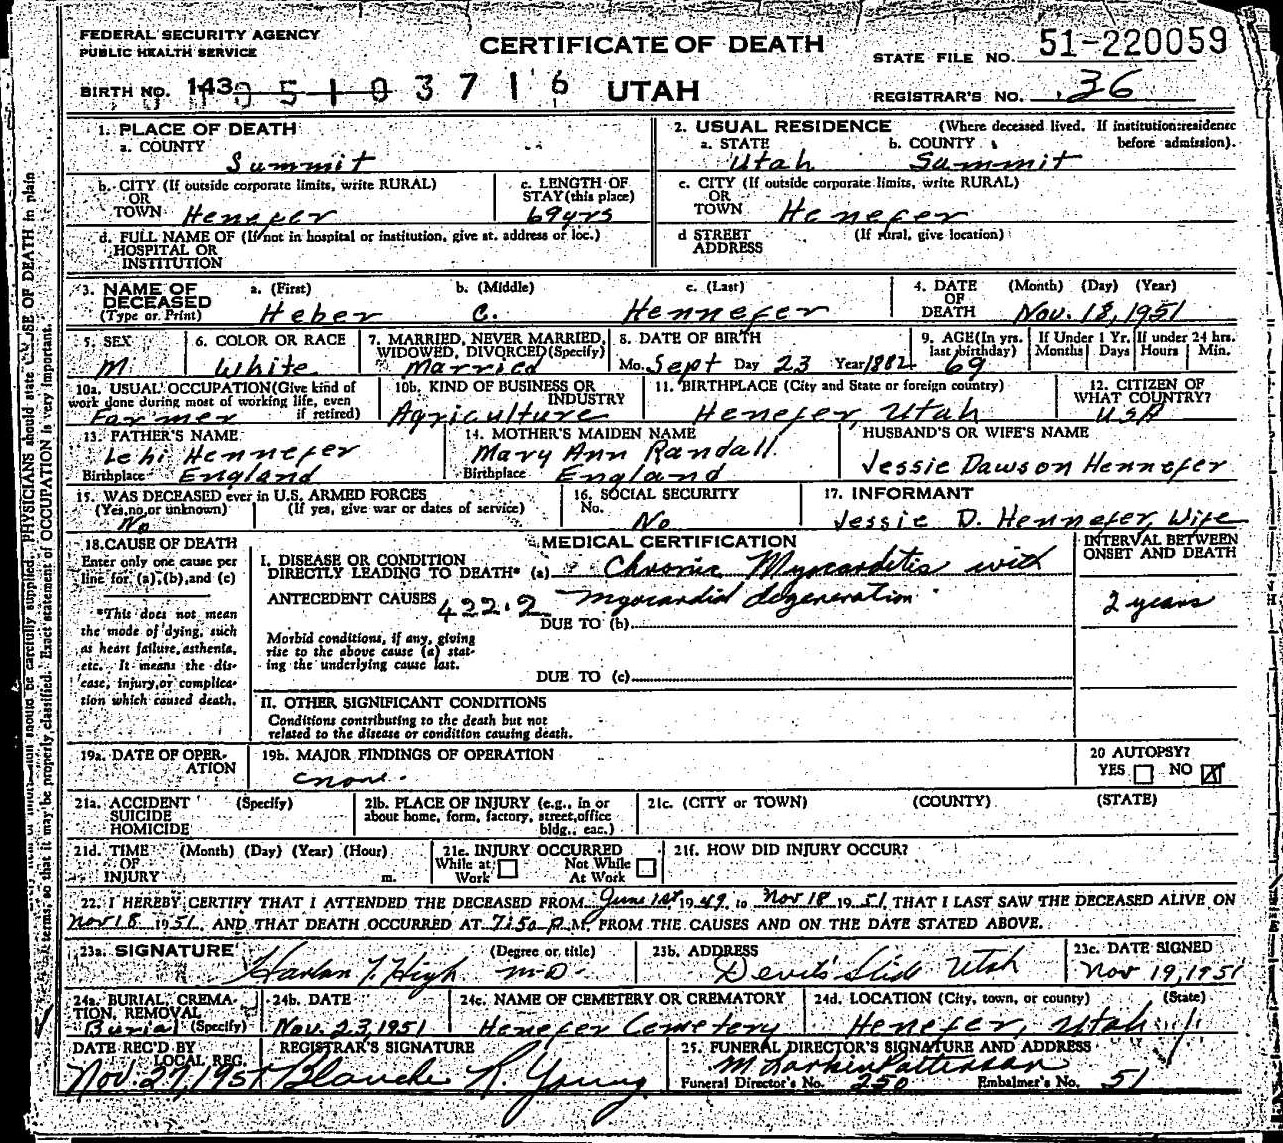 FEDERAL SECURITY AGENCY
PUBLIC HEALTH SERVICE
CERTIFICATE OF DEATH
STATE FILE NO. 51-220059
BIRTH NO. 143 0 5 1 0 3 7 1 6
UTAH
REGISTRAR'S NO. 36
1. PLACE OF DEATH
a. COUNTY
Summit
2. USUAL RESIDENCE (Where deceased lived. If institution: residence before admission).
a. STATE Utah b. COUNTY Summit
b. CITY (If outside corporate limits, write RURAL)
OR
TOWN Henefer
c. LENGTH OF
STAY (this place)
69 yrs
c. CITY (If outside corporate limits, write RURAL)
OR
TOWN Henefer
d. FULL NAME OF (If not in hospital or institution, give st. address or loc.)
HOSPITAL OR
INSTITUTION
d STREET (If rural, give location)
ADDRESS
3. NAME OF
DECEASED
(Type or Print)
a. (First) b. (Middle) c. (Last)
Heber C. Hennefer
4. DATE (Month) (Day) (Year)
OF
DEATH Nov. 18, 1951
5. SEX
M
6. COLOR OR RACE
White
7. MARRIED, NEVER MARRIED,
WIDOWED, DIVORCED (Specify)
Married
8. DATE OF BIRTH
Mo. Sept Day 23 Year 1882
9. AGE (In yrs.
last birthday)
69
If Under 1 Yr.
Months Days
If under 24 hrs.
Hours Min.
10a. USUAL OCCUPATION (Give kind of
work done during most of working life, even
if retired)
Farmer
10b. KIND OF BUSINESS OR
INDUSTRY
Agriculture
11. BIRTHPLACE (City and State or foreign country)
Henefer, Utah
12. CITIZEN OF
WHAT COUNTRY?
USA
13. FATHER'S NAME
Lehi Hennefer
Birthplace England
14. MOTHER'S MAIDEN NAME
Mary Ann Randall
Birthplace England
HUSBAND'S OR WIFE'S NAME
Jessie Dawson Hennefer
15. WAS DECEASED ever in U.S. ARMED FORCES
(Yes, no, or unknown) (If yes, give war or dates of service)
No
16. SOCIAL SECURITY
No. No
17. INFORMANT
Jessie D. Hennefer, Wife
18. CAUSE OF DEATH
Enter only one cause per
line for (a), (b), and (c)
*This does not mean
the mode of dying, such
as heart failure, asthenia,
etc. It means the dis-
ease, injury, or complica-
tion which caused death.
MEDICAL CERTIFICATION
INTERVAL BETWEEN
ONSET AND DEATH
I. DISEASE OR CONDITION
DIRECTLY LEADING TO DEATH* (a) Chronic Myocarditis with
ANTECEDENT CAUSES 422.2 Myocardial degeneration 2 years
DUE TO (b)
Morbid conditions, if any, giving
rise to the above cause (a) stat-
ing the underlying cause last.
DUE TO (c)
II. OTHER SIGNIFICANT CONDITIONS
Conditions contributing to the death but not
related to the disease or condition causing death.
19a. DATE OF OPER-
ATION
19b. MAJOR FINDINGS OF OPERATION
none.
20 AUTOPSY?
YES NO X
21a. ACCIDENT (Specify)
SUICIDE
HOMICIDE
21b. PLACE OF INJURY (e.g., in or
about home, form, factory, street, office
bldg., eac.)
21c. (CITY or TOWN) (COUNTY) (STATE)
21d. TIME (Month) (Day) (Year) (Hour)
OF
INJURY m.
21e. INJURY OCCURRED
While at Not While
Work At Work
21f. HOW DID INJURY OCCUR?
22. I HEREBY CERTIFY THAT I ATTENDED THE DECEASED FROM June 1st 1949 to Nov 18 1951, THAT I LAST SAW THE DECEASED ALIVE ON
Nov 18 1951, AND THAT DEATH OCCURRED AT 7:50 P.M. FROM THE CAUSES AND ON THE DATE STATED ABOVE.
23a. SIGNATURE (Degree or title)
Harlan T. High M.D.
23b. ADDRESS
Devil's Slide Utah
23c. DATE SIGNED
Nov 19, 1951
24a. BURIAL, CREMA-
TION, REMOVAL
Burial (Specify)
24b. DATE
Nov. 23, 1951
24c. NAME OF CEMETERY OR CREMATORY
Henefer Cemetery
24d. LOCATION (City, town, or county) (State)
Henefer, Utah
DATE REC'D BY
LOCAL REG.
Nov. 27, 1951
REGISTRAR'S SIGNATURE
Blanche R. Young
25. FUNERAL DIRECTOR'S SIGNATURE AND ADDRESS
M Larkin Patterson
Funeral Director's No. 250 Embalmer's No. 51